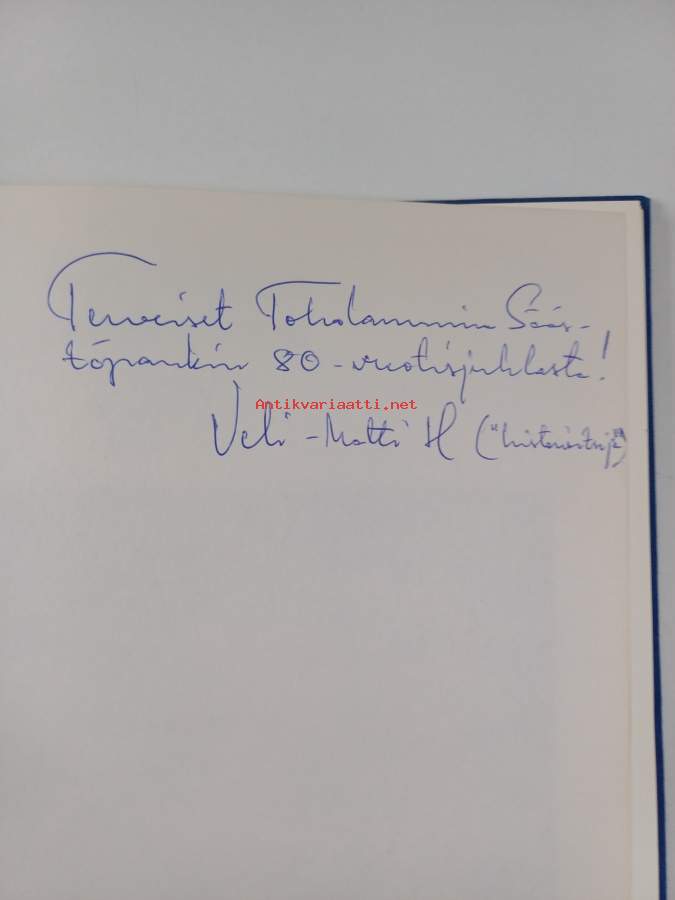 Terveiset Toholammin Sääs-
töpankin 80-vuotisjuhlasta!
Antikvariaatti.net
Veli-Matti H